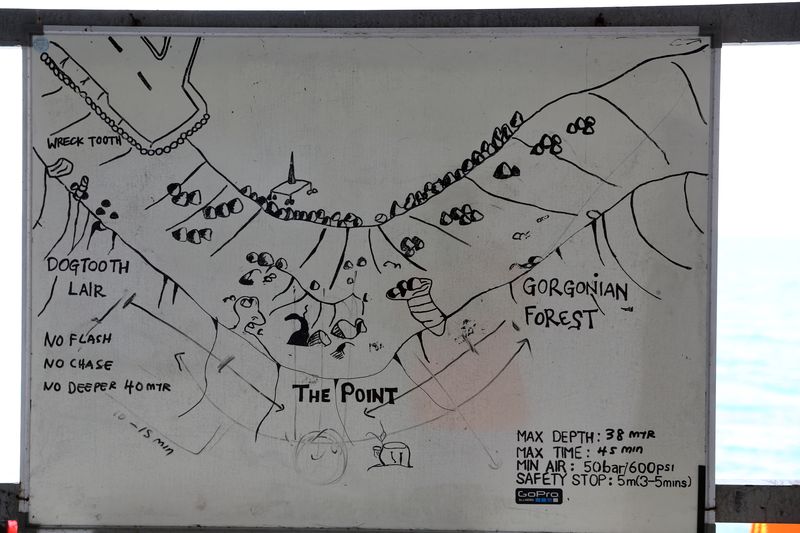 WRECK TOOTH
DOGTOOTH
LAIR
GORGONIAN
FOREST
NO FLASH
NO CHASE
NO DEEPER 40 MTR
THE POINT
10-15 min
MAX DEPTH: 38 MTR
MAX TIME: 45 min
MIN AIR: 50bar/600psi
SAFETY STOP: 5m(3-5mins)
GoPro